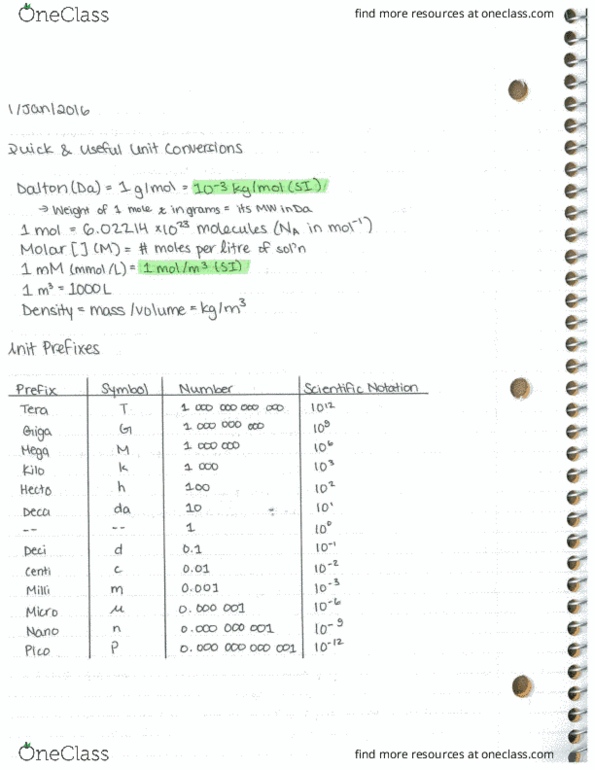 OneClass
find more resources at oneclass.com
1/Jan/2016
Quick & Useful Unit Conversions
Dalton (Da) = 1 g/mol = 10⁻³ kg/mol (SI)
→ Weight of 1 mole x in grams = its MW in Da
1 mol = 6.02214 × 10²³ molecules (NA in mol⁻¹)
Molar [ ] (M) = # moles per litre of sol'n
1 mM (mmol/L) = 1 mol/m³ (SI)
1 m³ = 1000 L
Density = mass/volume = kg/m³
Unit Prefixes
Prefix Symbol Number Scientific Notation
Tera T 1 000 000 000 000 10¹²
Giga G 1 000 000 000 10⁹
Mega M 1 000 000 10⁶
Kilo k 1 000 10³
Hecto h 100 10²
Deca da 10 10¹
-- -- 1 10⁰
Deci d 0.1 10⁻¹
Centi c 0.01 10⁻²
Milli m 0.001 10⁻³
Micro μ 0.000 001 10⁻⁶
Nano n 0.000 000 001 10⁻⁹
Pico P 0.000 000 000 001 10⁻¹²
OneClass
find more resources at oneclass.com